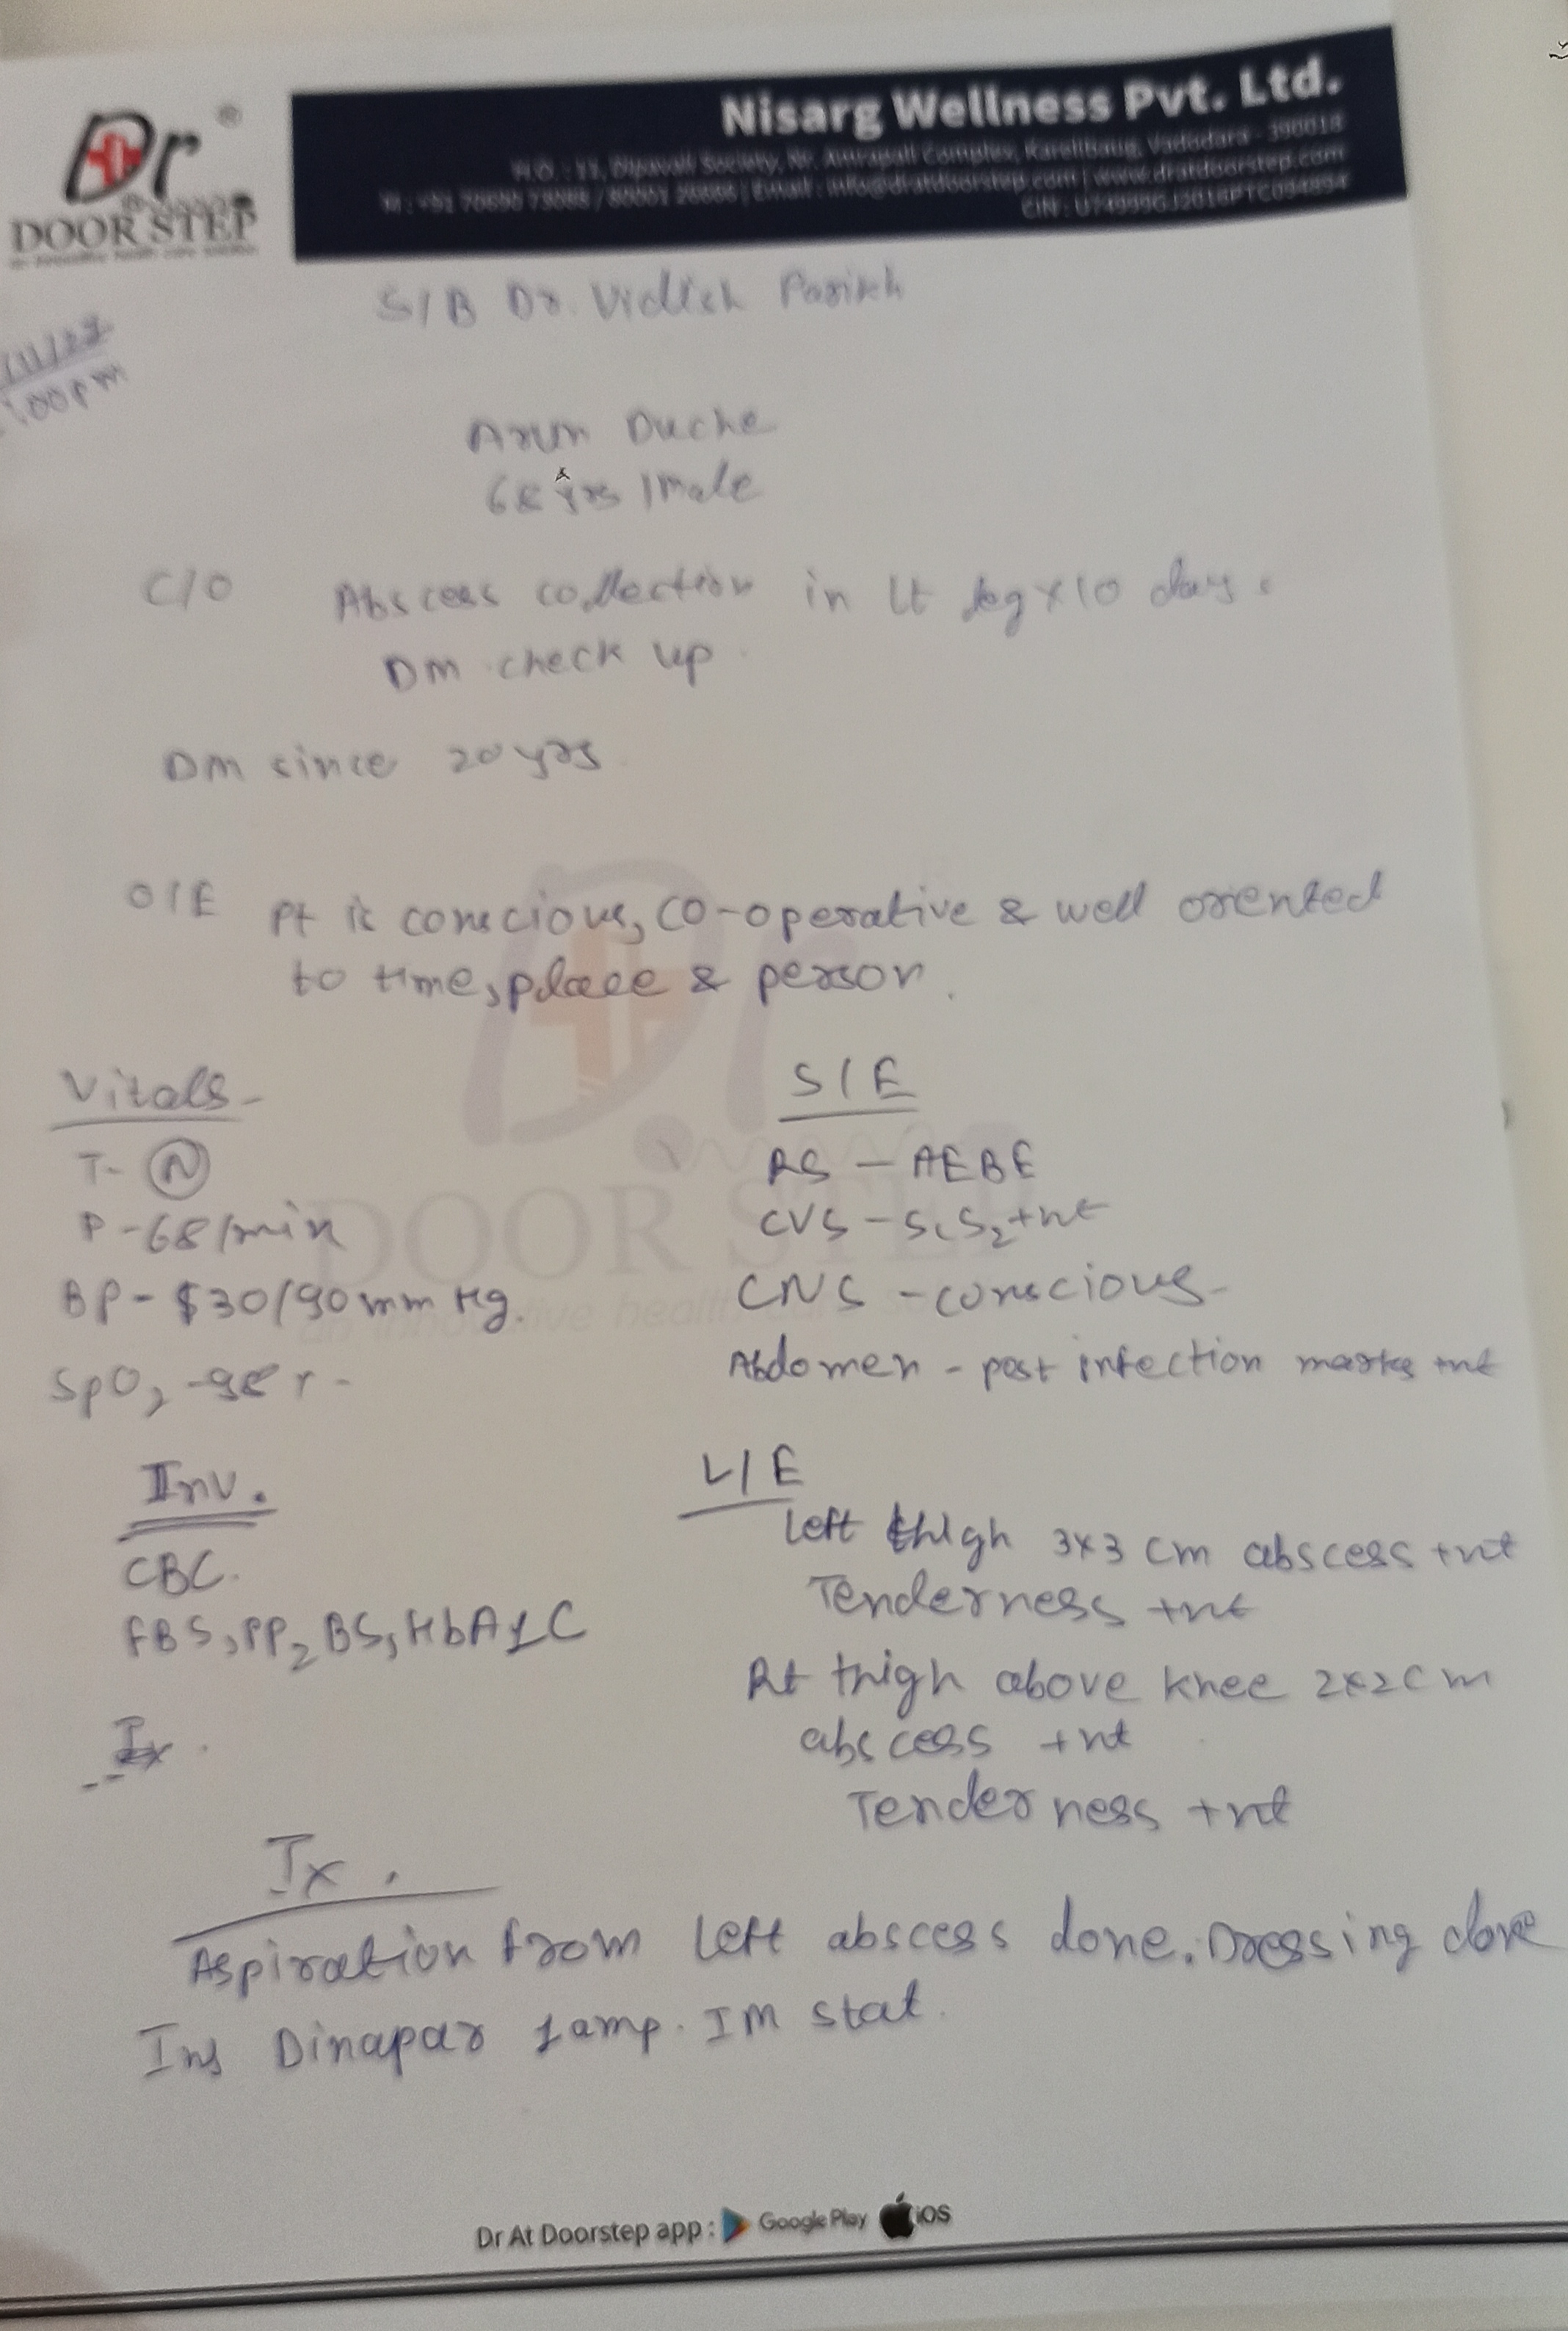 Dr
DOOR STEP
Nisarg Wellness Pvt. Ltd.
H.O. : 11, Dipavali Society, Nr. Amrapali Complex, Karelibaug, Vadodara - 390018
Email : info@dratdoorstep.com | www.dratdoorstep.com
S/B Dr. Vidlish Parikh
/11/23
:00pm
Arun Duche
68 yrs / Male
C/O Abscess collection in Lt leg x 10 days.
DM check up.
DM since 20 yrs.
O/E Pt is conscious, co-operative & well oriented
to time, place & person.
Vitals -
T- N
P - 68/min
BP - 130/90 mm Hg.
SpO2 - 98 %
S/E
RS - AEBE
CVS - S1S2 +nt
CNS - conscious
Abdomen - post infection marks +nt
Inv.
CBC.
FBS, PP2BS, HbA1C
L/E
Left thigh 3x3 cm abscess +nt
Tenderness +nt
Rt thigh above knee 2x2 cm
abscess +nt
Tenderness +nt
Tx.
Aspiration from left abscess done. Dressing done
Inj Dinapar 1 amp. IM stat.
DOOR STEP
Dr At Doorstep app : Google Play iOS